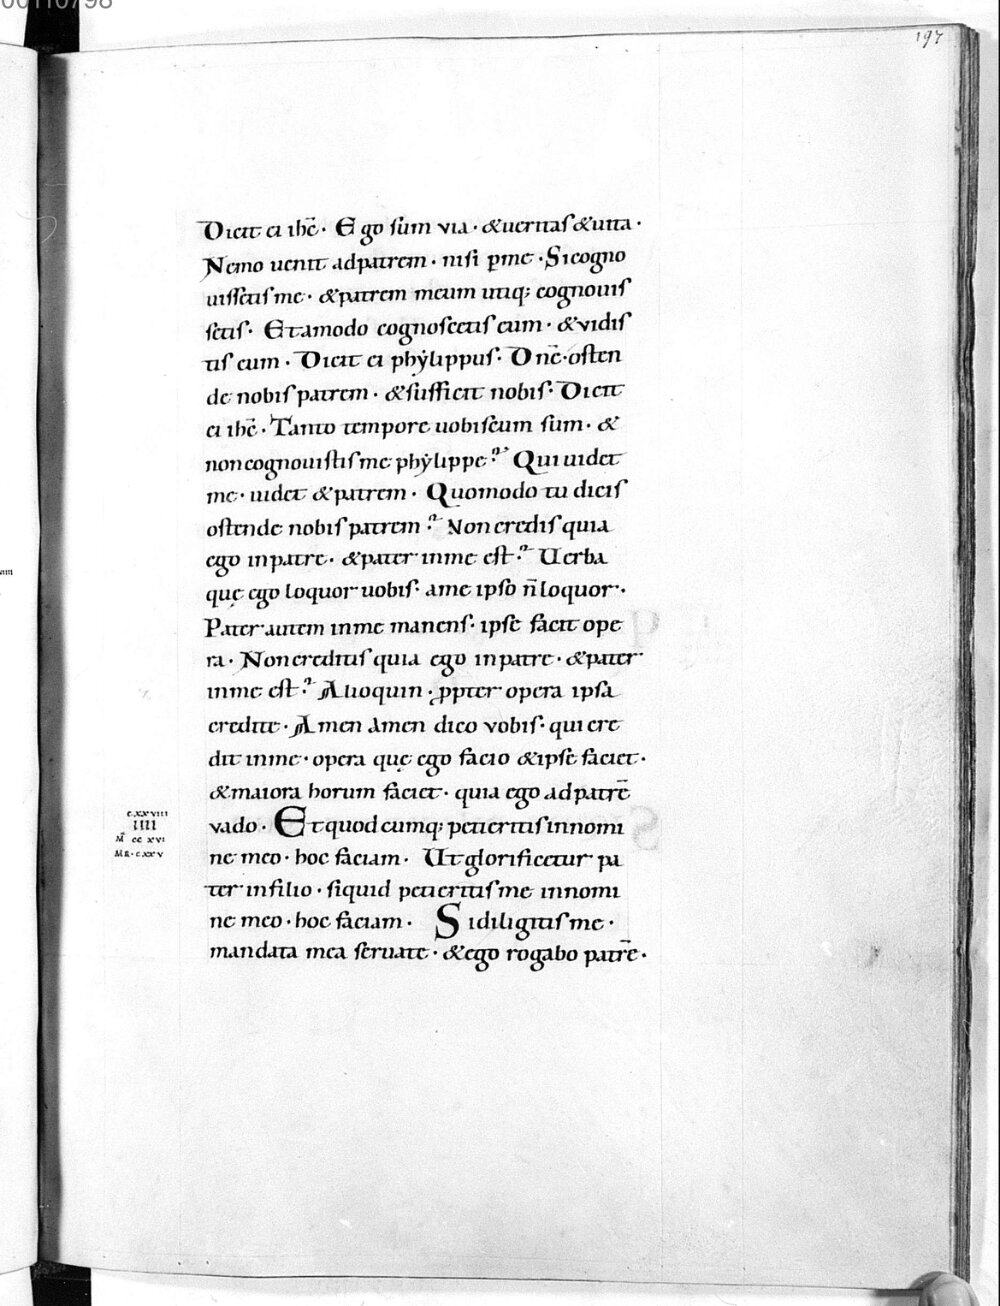 00110798
197
Dicit ei ihc̄· Ego sum via· &ueritas &uita·
Nemo uenit adpatrem· nisi ꝑme· Sicogno
uissetis me· &patrem meum utiq; cognouis
setis· Etamodo cognoscetis eum· &vidis
tis eum· Dicit ei phẏlippus· Dnē· osten
de nobis patrem· &sufficit nobis· Dicit
ei ihc̄· Tanto tempore uobiscum sum· &
noncognouistis me phẏlippe? Qui uidet
me· uidet &patrem· Quomodo tu dicis
ostende nobis patrem? Non credis quia
ego inpatre· &pater inme est? Uerba
quę ego loquor uobis· ame ipso n̄ loquor·
Pater autem inme manens· ipse facit ope
ra· Noncreditis quia ego inpatre· &pater
inme est? Alioquin· ꝓpter opera ipsa
credite· Amen amen dico vobis· qui cre
dit inme· opera quę ego facio &ipse faciet·
&maiora horum faciet· quia ego ad patrē
vado· Et quod cumq; petieritis innomi
ne meo· hoc faciam· Ut glorificetur pa
ter infilio· siquid petieritis me innomi
ne meo· hoc faciam· Si diligitis me·
mandata mea seruate· &ego rogabo patrē·
cxxviii
IIII
M̄ cc xvi
MR· cxxv
am